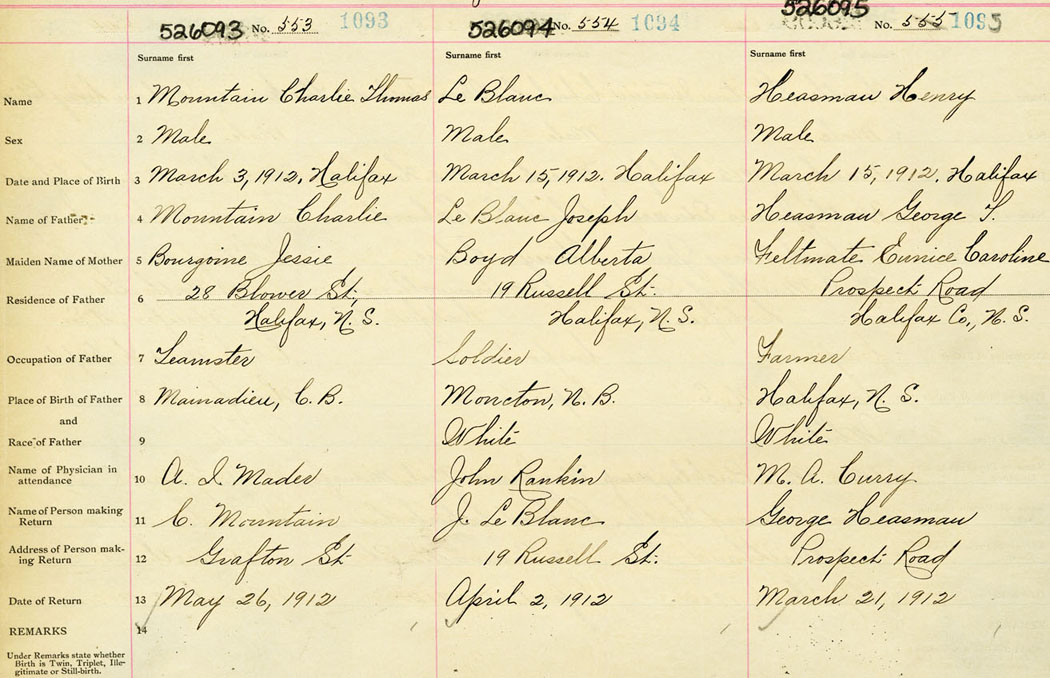 526093 No. 553 1093 526094 No. 554 1094 526095 No. 555 1095
Surname first Surname first Surname first
Name 1 Mountain Charlie Thomas Le Blanc Heasman Henry
Sex 2 Male Male Male
Date and Place of Birth 3 March 3, 1912. Halifax March 15, 1912. Halifax March 15, 1912. Halifax
Name of Father 4 Mountain Charlie Le Blanc Joseph Heasman George T.
Maiden Name of Mother 5 Bourgoine Jessie Boyd Alberta Feltmate Eunice Caroline
Residence of Father 6 28 Blower St., 19 Russell St. Prospect Road
Halifax, N. S. Halifax, N. S. Halifax Co., N. S.
Occupation of Father 7 Teamster Soldier Farmer
Place of Birth of Father 8 Mainadieu, C. B. Moncton, N. B. Halifax, N. S.
and
Race of Father 9 White White
Name of Physician in
attendance 10 A. I. Mader John Rankin M. A. Curry
Name of Person making
Return 11 C. Mountain J. Le Blanc George Heasman
Address of Person mak-
ing Return 12 Grafton St 19 Russell St. Prospect Road
Date of Return 13 May 26, 1912 April 2, 1912 March 21, 1912
REMARKS 14
Under Remarks state whether
Birth is Twin, Triplet, Ille-
gitimate or Still-birth.